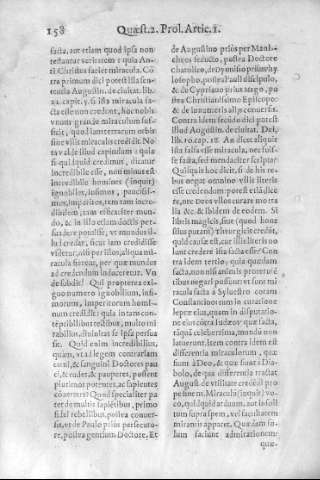 158 Quæst.2. Prol. Artic.1.
facta, aut etiam quod ipsa non
testantur scripturæ: quia An-
ti Christus faciet miracula. Cō
tra primum dici potest illa sen-
tentia Augustin. de ciuitat. lib.
22. capit. 5. si ista miracula fa-
cta esse non credunt, hoc nobis
vnum grande miraculum suf-
ficit, quod iam terrarum orbis
sine vllis miraculis credidit. No
ta valde illud capitulum: quia
si quid quid credimus, dicatur
incredibile esse, non minus est
incredibile homines (inquit)
ignobiles, infimos, paucissi-
mos, imperitos, rem tam incre-
dibilem, tam efficaciter mun-
do, & in illo etiam doctis per-
suadere potuisse, vt mundus il-
lud credat, sicut iam credidisse
videtur, nisi per istos, aliqua mi-
racula fierent, per quæ mundus
ad credendum induceretur. Vn
de subdit: Qui propterea exi-
guo numero ignobilium, infi-
morum, imperitorum homi-
num credidit: quia in tam con-
temptibilibus testibus, multo mi
rabilius, diuinitas se ipsa persua
sit. Quid enim incredibilius,
quàm, vt ad legem contrariam
carni, & sanguini Doctores pau
ci, & rudes, & pauperes, possent
plurimos potentes, ac sapientes
cōuertere? Quod specialiter pa
tet de multis sapiētibus, primo
fidei rebellibus, postea conuer-
sis, vt de Paulo prius persecuto-
re, postea gentium Doctore, Et
de Augustino priùs per Mani-
cheos seducto, postea Doctore
Catholico, de Dyonisio prius phy
losopho, postea Pauli discipulo,
& de Cypriano prius Mago, po
stea Christianissimo Episcopo:
& de innumeris alijs conuersis.
Contra idem secundo dici potest
illud Augustin. de ciuitat. Dei,
lib. 10. cap. 18. An dicet aliquis
ista falsa esse miracula, nec fuis-
se facta, sed mendaciter scripta?
Quisquis hoc dicit, si de his re-
bus negat omnino vllis literis
esse credendum potest etiā dice
re, nec Deos vllos curare morta
lia &c. & ibidem de eodem. Si
libris magicis, siue (quod hone
stius putant) Theurgicis credūt,
quid causæ est, cur illis literis no
lunt credere ista facta esse? Con
tra idem tertiò, quia quædam
facta, non nisi animis proteruiē
tibus negari possunt: vt sunt mi
racula facta à Syluestro coram
Constantino tum in curatione
lepræ eius, quam in disputatio-
ne eius contra Iudæos: quæ facta,
tāquā celeberrima, mundū non
latuerunt. Item contra idem est
differentia miraculorum, quæ
sunt à Deo, & quæ sunt à Dia-
bolo, de qua differentia tractat
August. de vtilitate credēdi pro
pe finem. Miracula (inquit) vo-
co, quidquid arduum, aut insoli
tum supra spem, vel facultatem
mirantis apparet. Quædam so-
lum faciunt admirationem:
quæ-